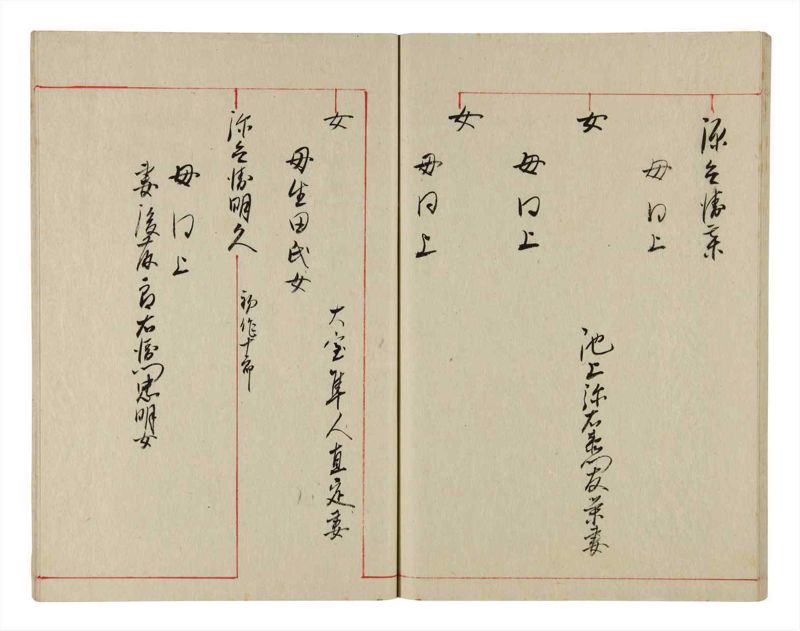 源兵衛某
母同上
女
池上弥右衛門友業妻
母同上
女
母同上
女
大室隼人直定妻
母生田氏女
弥兵衛明久
初作十郎
母同上
妻後藤郎右衛門忠明女